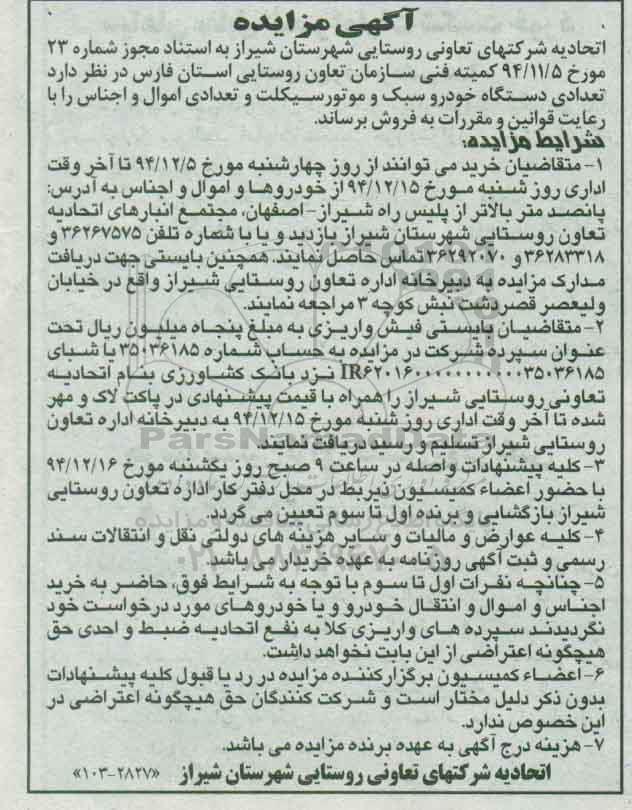 آگهی مزایده
اتحادیه شرکتهای تعاونی روستایی شهرستان شیراز به استناد مجوز شماره ۲۳
مورخ ۹۴/۱۱/۵ کمیته فنی سازمان تعاون روستایی استان فارس در نظر دارد
تعدادی دستگاه خودرو سبک و موتورسیکلت و تعدادی اموال و اجناس را با
رعایت قوانین و مقررات به فروش برساند.
شرایط مزایده:
۱- متقاضیان خرید می توانند از روز چهارشنبه مورخ ۹۴/۱۲/۵ تا آخر وقت
اداری روز شنبه مورخ ۹۴/۱۲/۱۵ از خودروها و اموال و اجناس به آدرس:
پانصد متر بالاتر از پلیس راه شیراز- اصفهان، مجتمع انبارهای اتحادیه
تعاون روستایی شهرستان شیراز بازدید و یا با شماره تلفن ۳۶۲۶۷۵۷۵ و
۳۶۲۸۳۳۱۸ و ۳۶۲۹۲۰۷۰ تماس حاصل نمایند. همچنین بایستی جهت دریافت
مدارک مزایده به دبیرخانه اداره تعاون روستایی شیراز واقع در خیابان
ولیعصر قصردشت نبش کوچه ۳ مراجعه نمایند.
۲- متقاضیان بایستی فیش واریزی به مبلغ پنجاه میلیون ریال تحت
عنوان سپرده شرکت در مزایده به حساب شماره ۳۵۰۳۶۱۸۵ یا شبای
نزد بانک کشاورزی بنام اتحادیه
تعاونی روستایی شیراز را همراه با قیمت پیشنهادی در پاکت لاک و مهر
شده تا آخر وقت اداری روز شنبه مورخ ۹۴/۱۲/۱۵ به دبیرخانه اداره تعاون
روستایی شیراز تسلیم و رسید دریافت نمایند.
۳- کلیه پیشنهادات واصله در ساعت ۹ صبح روز یکشنبه مورخ ۹۴/۱۲/۱۶
با حضور اعضاء کمیسیون ذیربط در محل دفتر کار اداره تعاون روستایی
شیراز بازگشایی و برنده اول تا سوم تعیین می گردد.
۴- کلیه عوارض و مالیات و سایر هزینه های دولتی نقل و انتقالات سند
رسمی و ثبت آگهی روزنامه به عهده خریدار می باشد.
۵- چنانچه نفرات اول تا سوم با توجه به شرایط فوق، حاضر به خرید
اجناس و اموال و انتقال خودرو و یا خودروهای مورد درخواست خود
نگردیدند سپرده های واریزی کلا به نفع اتحادیه ضبط و احدی حق
هیچگونه اعتراضی از این بابت نخواهد داشت.
۶- اعضاء کمیسیون برگزارکننده مزایده در رد یا قبول کلیه پیشنهادات
بدون ذکر دلیل مختار است و شرکت کنندگان حق هیچگونه اعتراضی در
این خصوص ندارد.
۷- هزینه درج آگهی به عهده برنده مزایده می باشد.
اتحادیه شرکتهای تعاونی روستایی شهرستان شیراز «۲۸۲۷-۱۰۳»